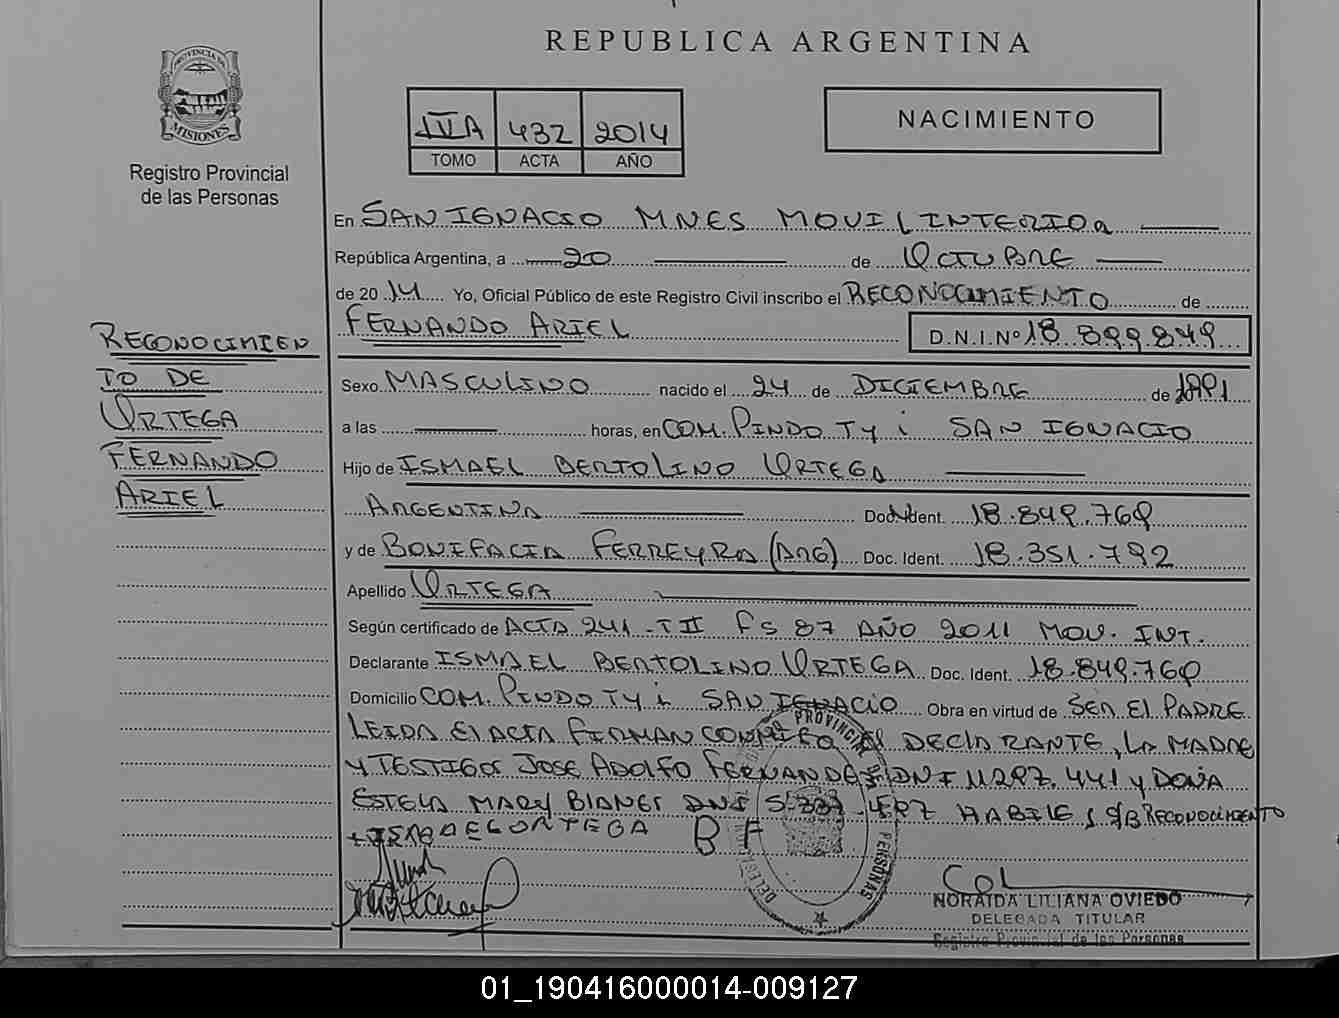 REPUBLICA ARGENTINA
PROVINCIA DE
MISIONES
Registro Provincial
de las Personas
IVA 432 2014
TOMO ACTA AÑO
NACIMIENTO
En SAN IGNACIO MNES MOVIL INTERIOR
República Argentina, a 20 de OCTUBRE
de 2014 Yo, Oficial Público de este Registro Civil inscribo el RECONOCIMIENTO de
FERNANDO ARIEL D.N.I.Nº 18.899.849
RECONOCIMIEN
TO DE
ORTEGA
FERNANDO
ARIEL
Sexo MASCULINO nacido el 24 de DICIEMBRE de 1991
a las horas, en COM. PINDO TY i SAN IGNACIO
Hijo de ISMAEL BERTOLINO ORTEGA
ARGENTINA Doc. Ident. 18.849.769
y de BONIFACIA FERREYRA (ARG) Doc. Ident. 18.351.792
Apellido ORTEGA
Según certificado de ACTA 241 - T II FS 87 AÑO 2011 MOV. INT.
Declarante ISMAEL BERTOLINO ORTEGA Doc. Ident. 18.849.769
Domicilio COM. PINDO TY i SAN IGNACIO Obra en virtud de SER El PADRE
LEIDA El ACTA FIRMAN CONMIGO El DECLARANTE, LA MADRE
Y TESTIGOS JOSE ADOLFO FERNANDEZ DNI 11297.441 y DOÑA
ESTELA MARY DNI HABILES S/B RECONOCIMIENTO
ORTEGA B F
PROVINCIA PERSONAS
NORAIDA LILIANA OVIEDO
DELEGADA TITULAR
Registro Provincial de las Personas
01_190416000014-009127